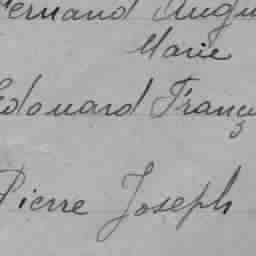 Fernand Augu
Marie
Edouard Franç
Pierre Joseph